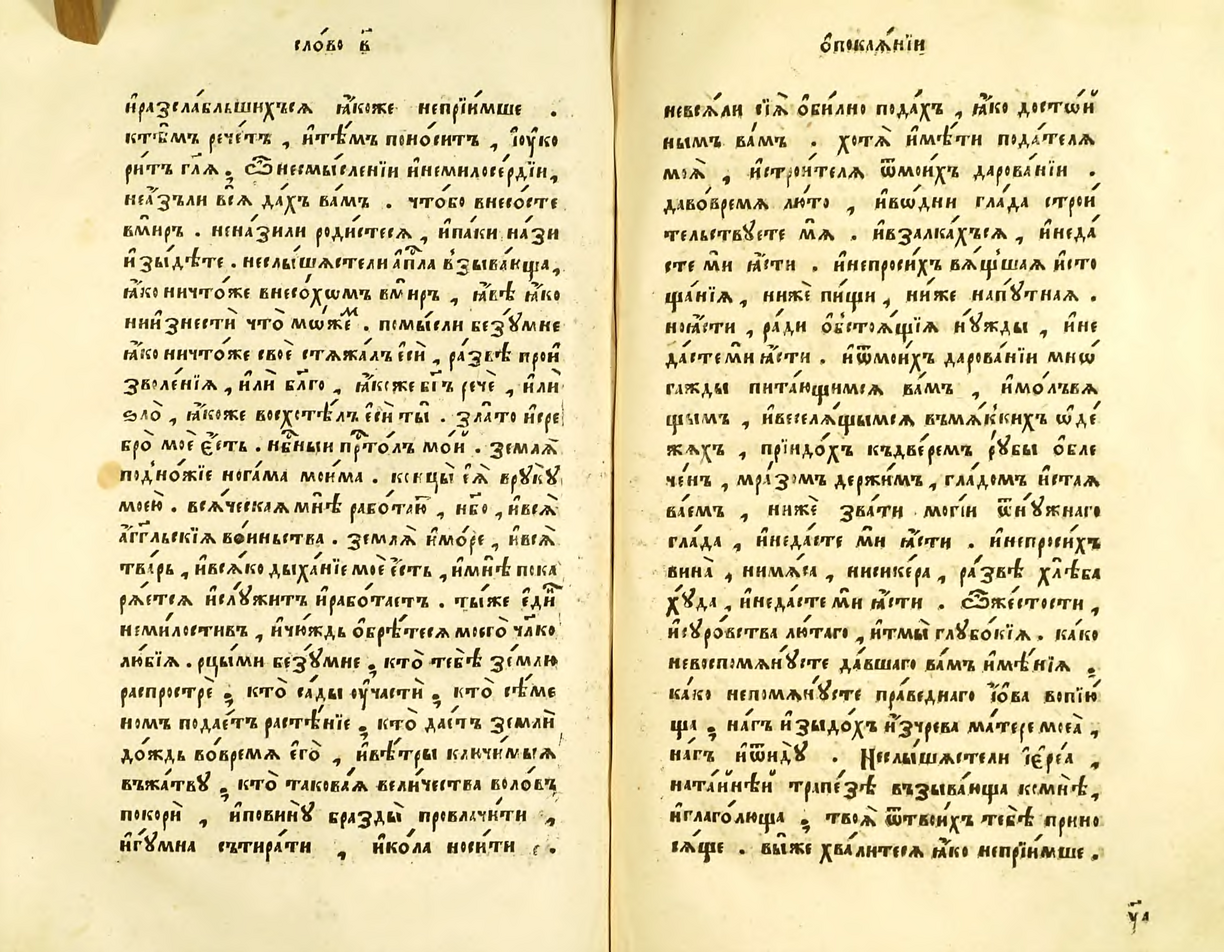 сло́во в҃
и҆разсла́бльшихъсѧ ꙗ҆́коже непрїи́мше .
ктѣ́мъ рече́тъ , и҆тѣ́мъ поно́ситъ , і҆оу҆ко
ри́тъ гл҃ѧ . Ѽ несмы́сленїи и҆немилосе́рдїи ,
неа҆́зъли всѧ̀ да́хъ ва́мъ . что́бо внесо́сте
вми́ръ . нена́зили роди́стесѧ , и҆па́ки на́зи
и҆зы́дѣте . неслы́шѧстели а҆пⷭ҇ла взыва́юща ,
ꙗ҆́ко ничто́же внесо́хѡмъ вми́ръ , ꙗ҆́вѣ ꙗ҆́ко
нии҆знестѝ что̀ мо́жеⷨ . помы́сли безꙋ́мне
ꙗ҆́ко ничто́же своѐ стѧжа́лъ є҆сѝ , ра́звѣ прои
зволе́нїѧ , и҆лѝ бл҃го , ꙗ҆́коже бг҃ъ речѐ , и҆лѝ
ѕло̀ , ꙗ҆́коже восхотѣ́лъ є҆сѝ ты̀ . зла́то и҆сре
бро̀ моѐ є҆́сть . нбⷭ҇ныи прⷭ҇то́лъ мо́й . землѧ̀
подно́жїе нога́ма мои́ма . концы̀ є҆ѧ̀ врꙋкꙋ̀
мое́ю . всѧ́ческаѧ мнѣ̀ рабо́таюⷮ , нб҃о , и҆всѧ̀
а҆́гг҃льскїѧ во́иньства . землѧ̀ и҆мо́ре , и҆всѧ̀
тва́рь , и҆всѧ́ко дыха́нїе моѐ є҆́сть , и҆мнѣ̀ пока
рѧ́етсѧ и҆слꙋ́житъ и҆рабо́таетъ . ты́же є҆ди́ⷩ
неми́лостивъ , и҆чю́ждь ѡ҆брѣ́тесѧ моего̀ чл҃ко
лю́бїѧ . рцы́ми безꙋ́мне , кто̀ тебѣ̀ зе́млю
распрострѐ ; кто̀ са́ды оу҆частѝ ; кто̀ сѣ́ме
номъ подае́тъ растѣ́нїе ; кто̀ да́стъ землѝ
до́ждь во́времѧ є҆го̀ , и҆вѣ́тры ключи́мыѧ
въжа́твꙋ ; кто̀ такова́ѧ вели́чества воло́въ
покорѝ , и҆повинꙋ̀ бразды̀ провлачи́ти ,
и҆гꙋмна̀ сътира́ти , и҆ко́ла носи́ти .
ѡ҆покаѧ́нїи
невсѧ́ли сїѧ̀ ѻ҆би́лно пода́хъ , ꙗ҆́ко досто́й
нымъ ва́мъ . хотѧ̀ и҆мѣ́ти пода́телѧ
моѧ̀ , и҆строи́телѧ ѿмои́хъ дарова́нїи .
даво́времѧ лю́то , и҆вѡ́дни гла́да строи
те́льствꙋете мѧ̀ . и҆взалка́хъсѧ , и҆неда́
сте мѝ ꙗ҆́сти . и҆непроси́хъ вѧ́щшаѧ и҆сто
ща́нїѧ , нижѐ пи́щи , нижѐ напꙋ́тнаѧ .
ноꙗ҆́сти , ра́ди ѻ҆бстоѧ́щїѧ нꙋ́жды , и҆не
да́стеми ꙗ҆́сти . и҆ѿмои́хъ дарова́нїи мнѡ́
гажды пита́ющимсѧ ва́мъ , и҆мо́лъвѧ
щымъ , и҆веселѧ́щымсѧ въмѧ́ккихъ ѡ҆де́
жахъ , прїидо́хъ къдве́ремъ рꙋ́бы ѡ҆бле
че́нъ , мра́зомъ держи́мъ , гла́домъ и҆стаѧ
ва́емъ , нижѐ зва́ти могі́й ѿнꙋ́жнаго
гла́да , и҆неда́сте мѝ ꙗ҆́сти . и҆непроси́хъ
вина̀ , нимѧ́са , нисике́ра , ра́звѣ хлѣ́ба
хꙋ́да , и҆неда́сте мѝ ꙗ҆́сти . Ѽ же́стости ,
и҆сꙋро́вства лю́таго , и҆тмы̀ глꙋбо́кїѧ . ка́ко
невоспомѧнꙋ́сте да́вшаго ва́мъ и҆мѣ́нїѧ ;
ка́ко непомѧнꙋ́сте пра́веднаго і҆́ова вопїю́
ща ; на́гъ и҆зыдо́хъ и҆зчре́ва ма́тере моеѧ̀ ,
на́гъ и҆ѿидꙋ̀ . Неслы́шѧстели і҆ере́а ,
ната́йнѣй трапе́зѣ възыва́юща комнѣ̀ ,
и҆глаго́люща ; твоѧ̀ ѿтвои́хъ тебѣ̀ прино
сѧ́ще . вы́же хвали́тесѧ ꙗ҆́ко непрїи́мше .